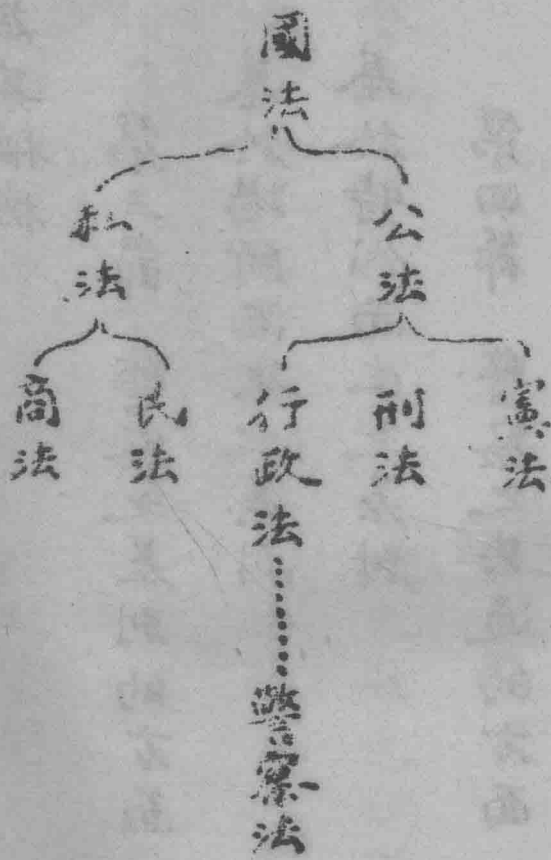 國法
公法
私法
憲法
刑法
行政法
民法
商法
警察法